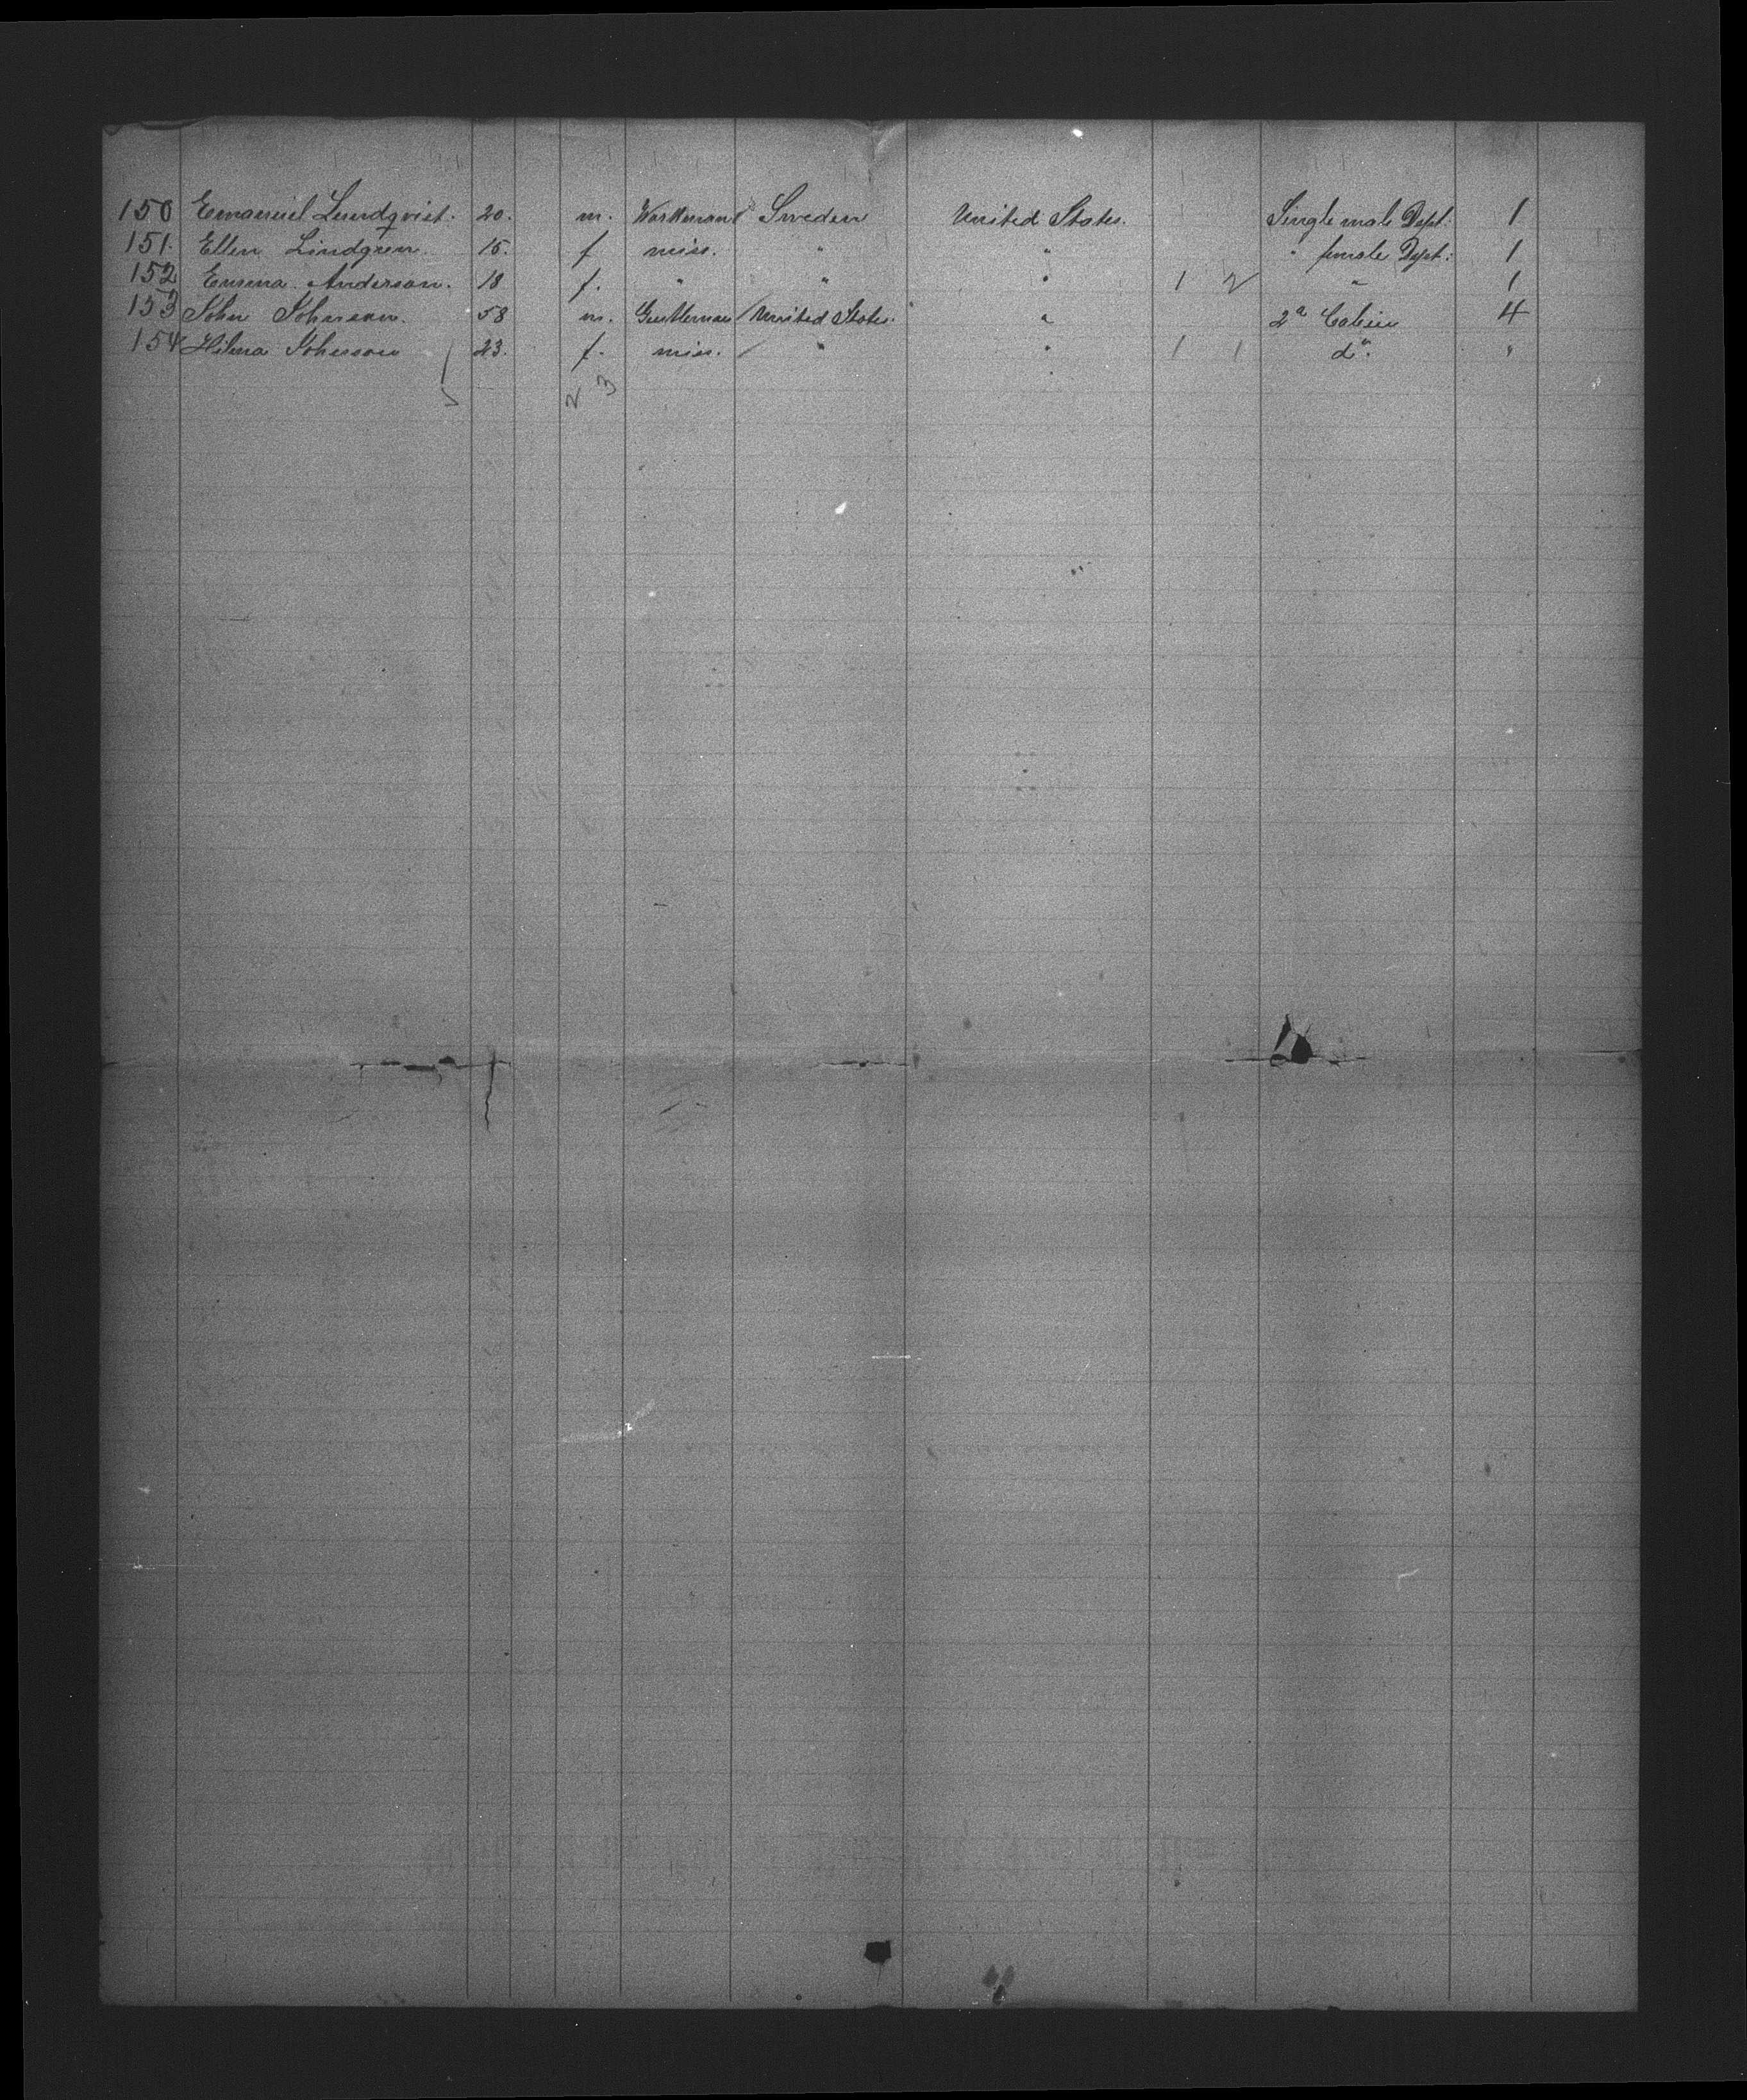 150 Emanuel Lundqvist. 20. m. Workman Sweden United States. Single male Dept. 1
151. Ellen Lindgren. 15. f miss. " " " female Dept: 1
152 Emma Anderson. 18 f. " " " 1 2 " 1
153 John Johnson. 58 m. Gentleman United States. " 2a Cabin 4
154 Hilma Johnson 23. f. miss. " " 1 1 do. "
5 2 3